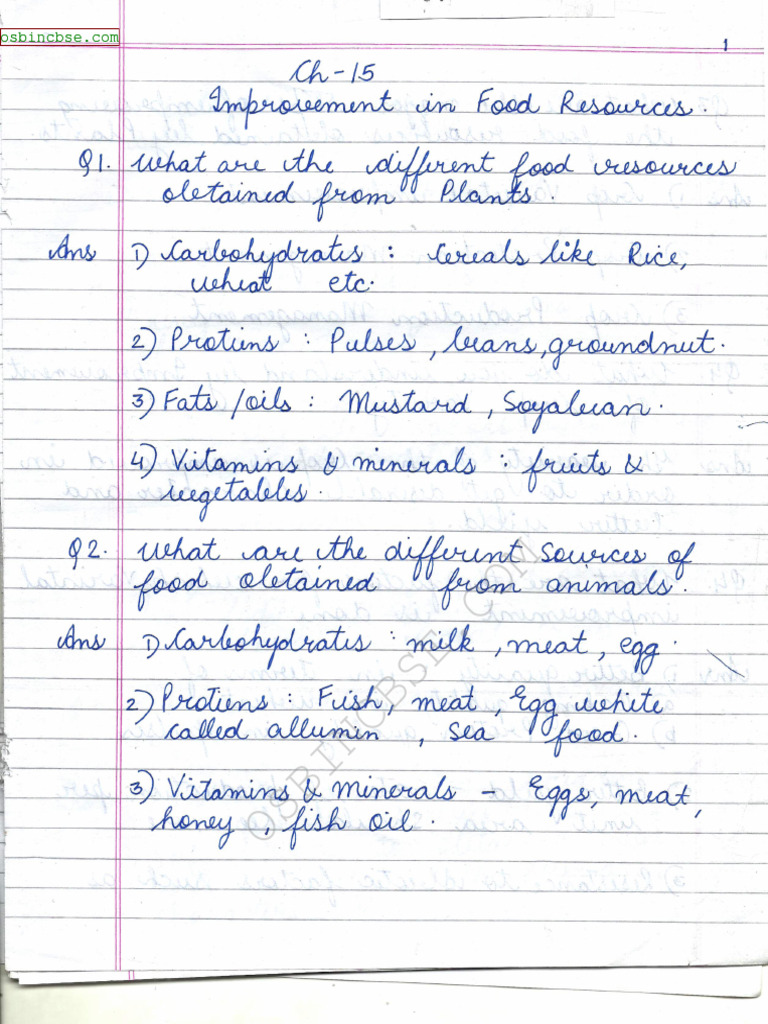 osbincbse.com
1
Ch-15
Improvement in Food Resources.
Q1. What are the different food resources
obtained from Plants.
Ans 1) Carbohydrates : Cereals like Rice,
wheat etc.
2) Protiens : Pulses, beans, groundnut.
3) Fats/oils : Mustard, Soyabean.
4) Vitamins & minerals : fruits &
vegetables.
Q2. What are the different sources of
food obtained from animals.
Ans 1) Carbohydrates : milk, meat, egg.
2) Protiens : Fish, meat, Egg white
called allumin, sea food.
3) Vitamins & minerals - Eggs, meat,
honey, fish oil.
OSBINCBSE.COM